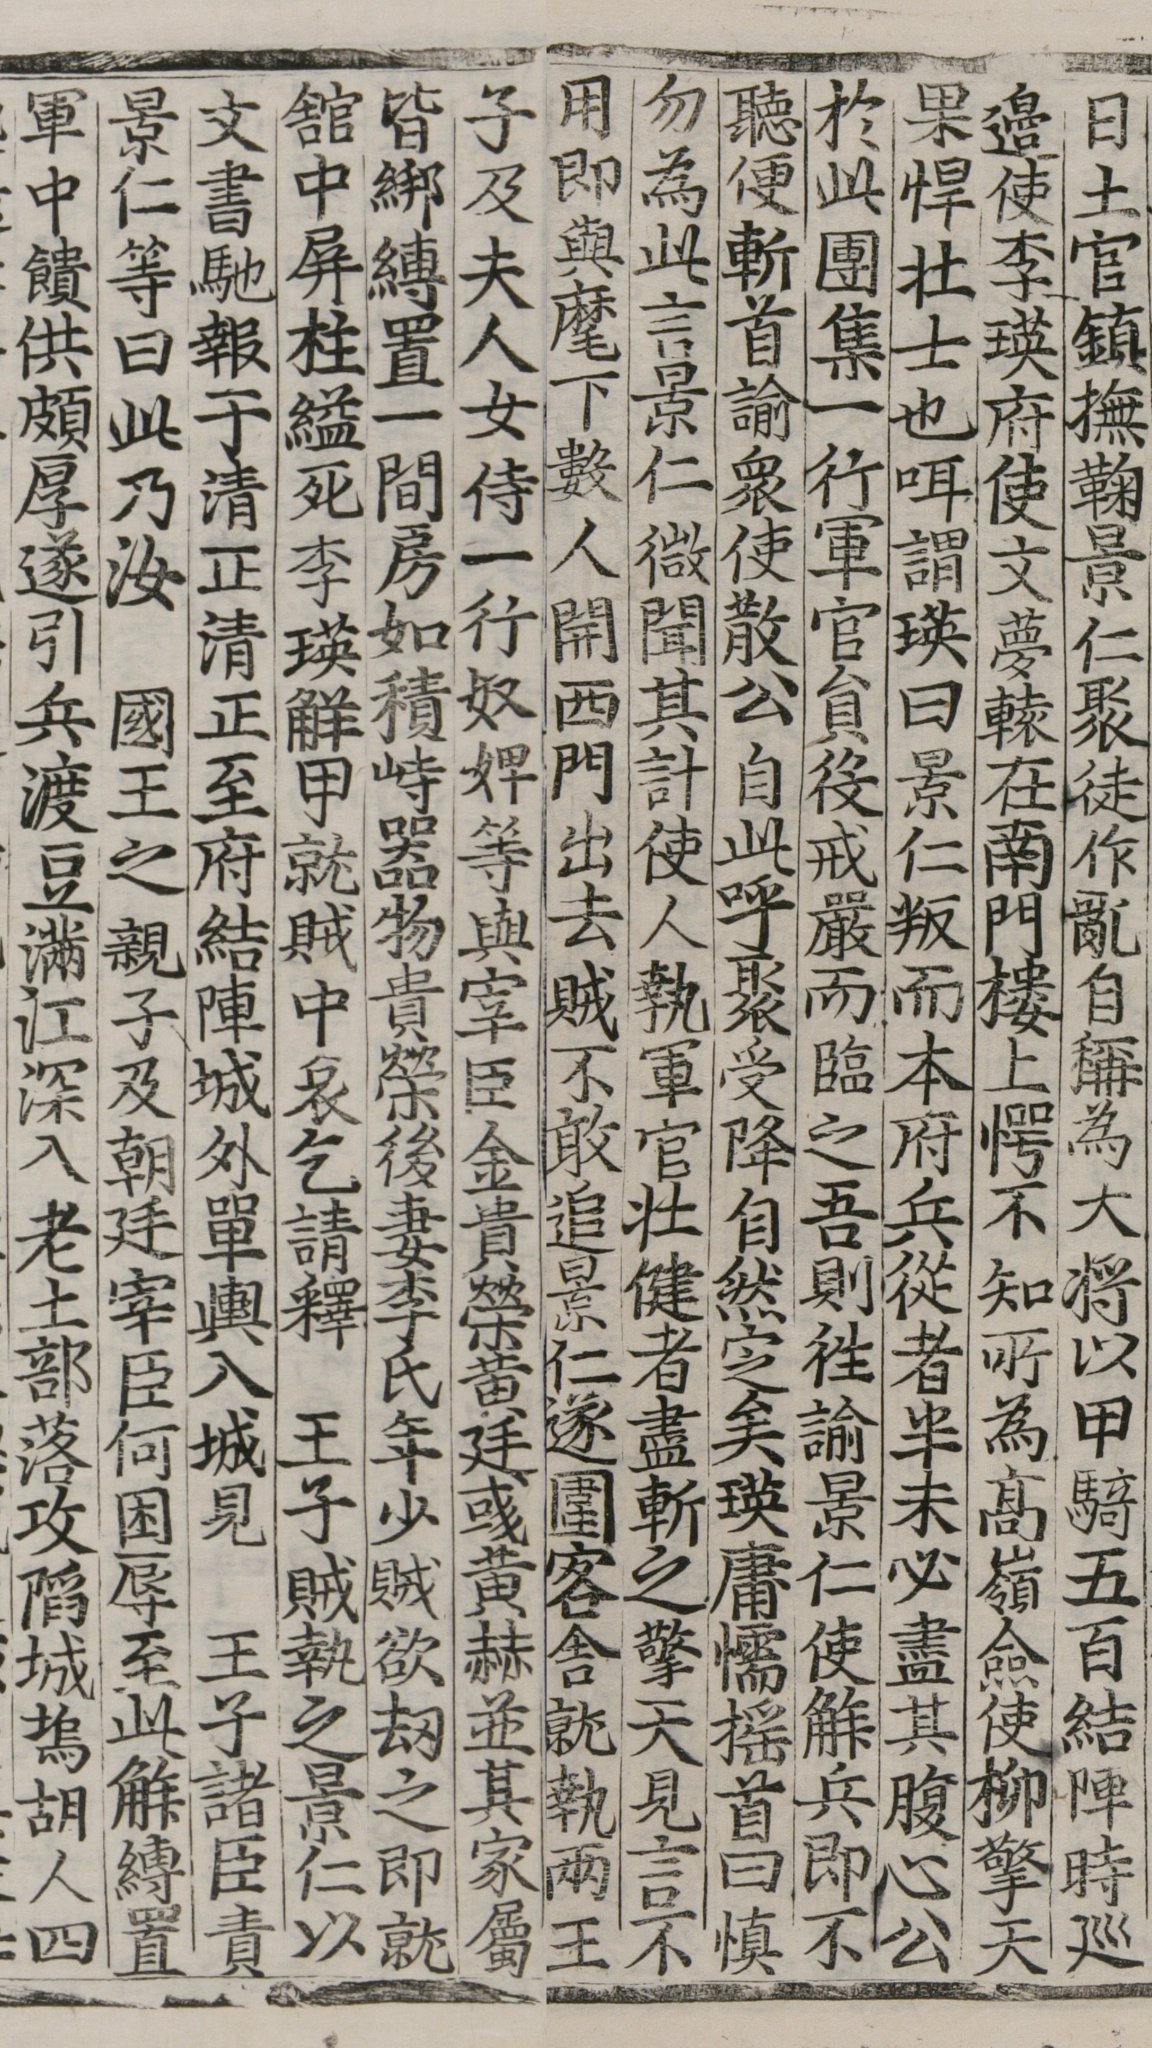 日土官鎮撫鞠景仁聚徒作亂自稱為大將以甲騎五百結陣時巡
邉使李瑛府使文夢轅在南門楼上愕不知所為高嶺僉使柳擎天
果悍壮士也咡謂瑛曰景仁叛而本府兵從者半未必盡其腹心公
於此團集一行軍官貟役戒嚴而臨之吾則徃諭景仁使觧兵即不
聽便斬首諭衆使散公自此呼聚受降自然定矣瑛庸懦揺首曰慎
勿為此言景仁微聞其計使人執軍官壮健者盡斬之擎天見言不
用即與麾下數人開西門出去賊不敢追景仁遂圍客舎就執兩王
子及夫人女侍一行奴婢等與宰臣金貴榮黄廷彧黄赫並其家屬
皆綁縛置一間房如積峙器物貴榮後妻李氏年少賊欲刼之即就
舘中屏柱縊死李瑛觧甲就賊中哀乞請釋 王子賊執之景仁以
文書馳報于清正清正至府結陣城外單輿入城見 王子諸臣責
景仁等曰此乃汝 國王之親子及朝廷宰臣何困辱至此觧縛置
軍中饋供頗厚遂引兵渡豆滿江深入老土部落攻䧟城塢胡人四